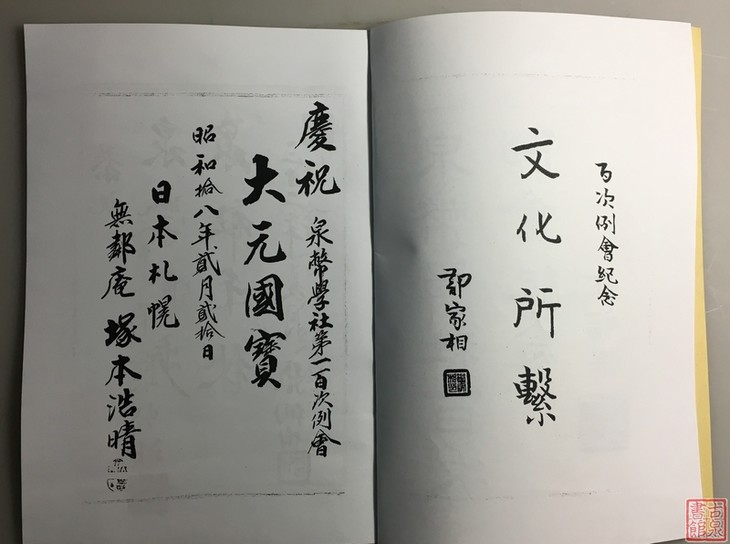 百次例會紀念
文化所繫
鄭家相
慶祝
泉幣學社第一百次例會
大元國寶
昭和拾八年貳月貳拾日
日本札幌
無 庵 塚本浩晴
古泉書館